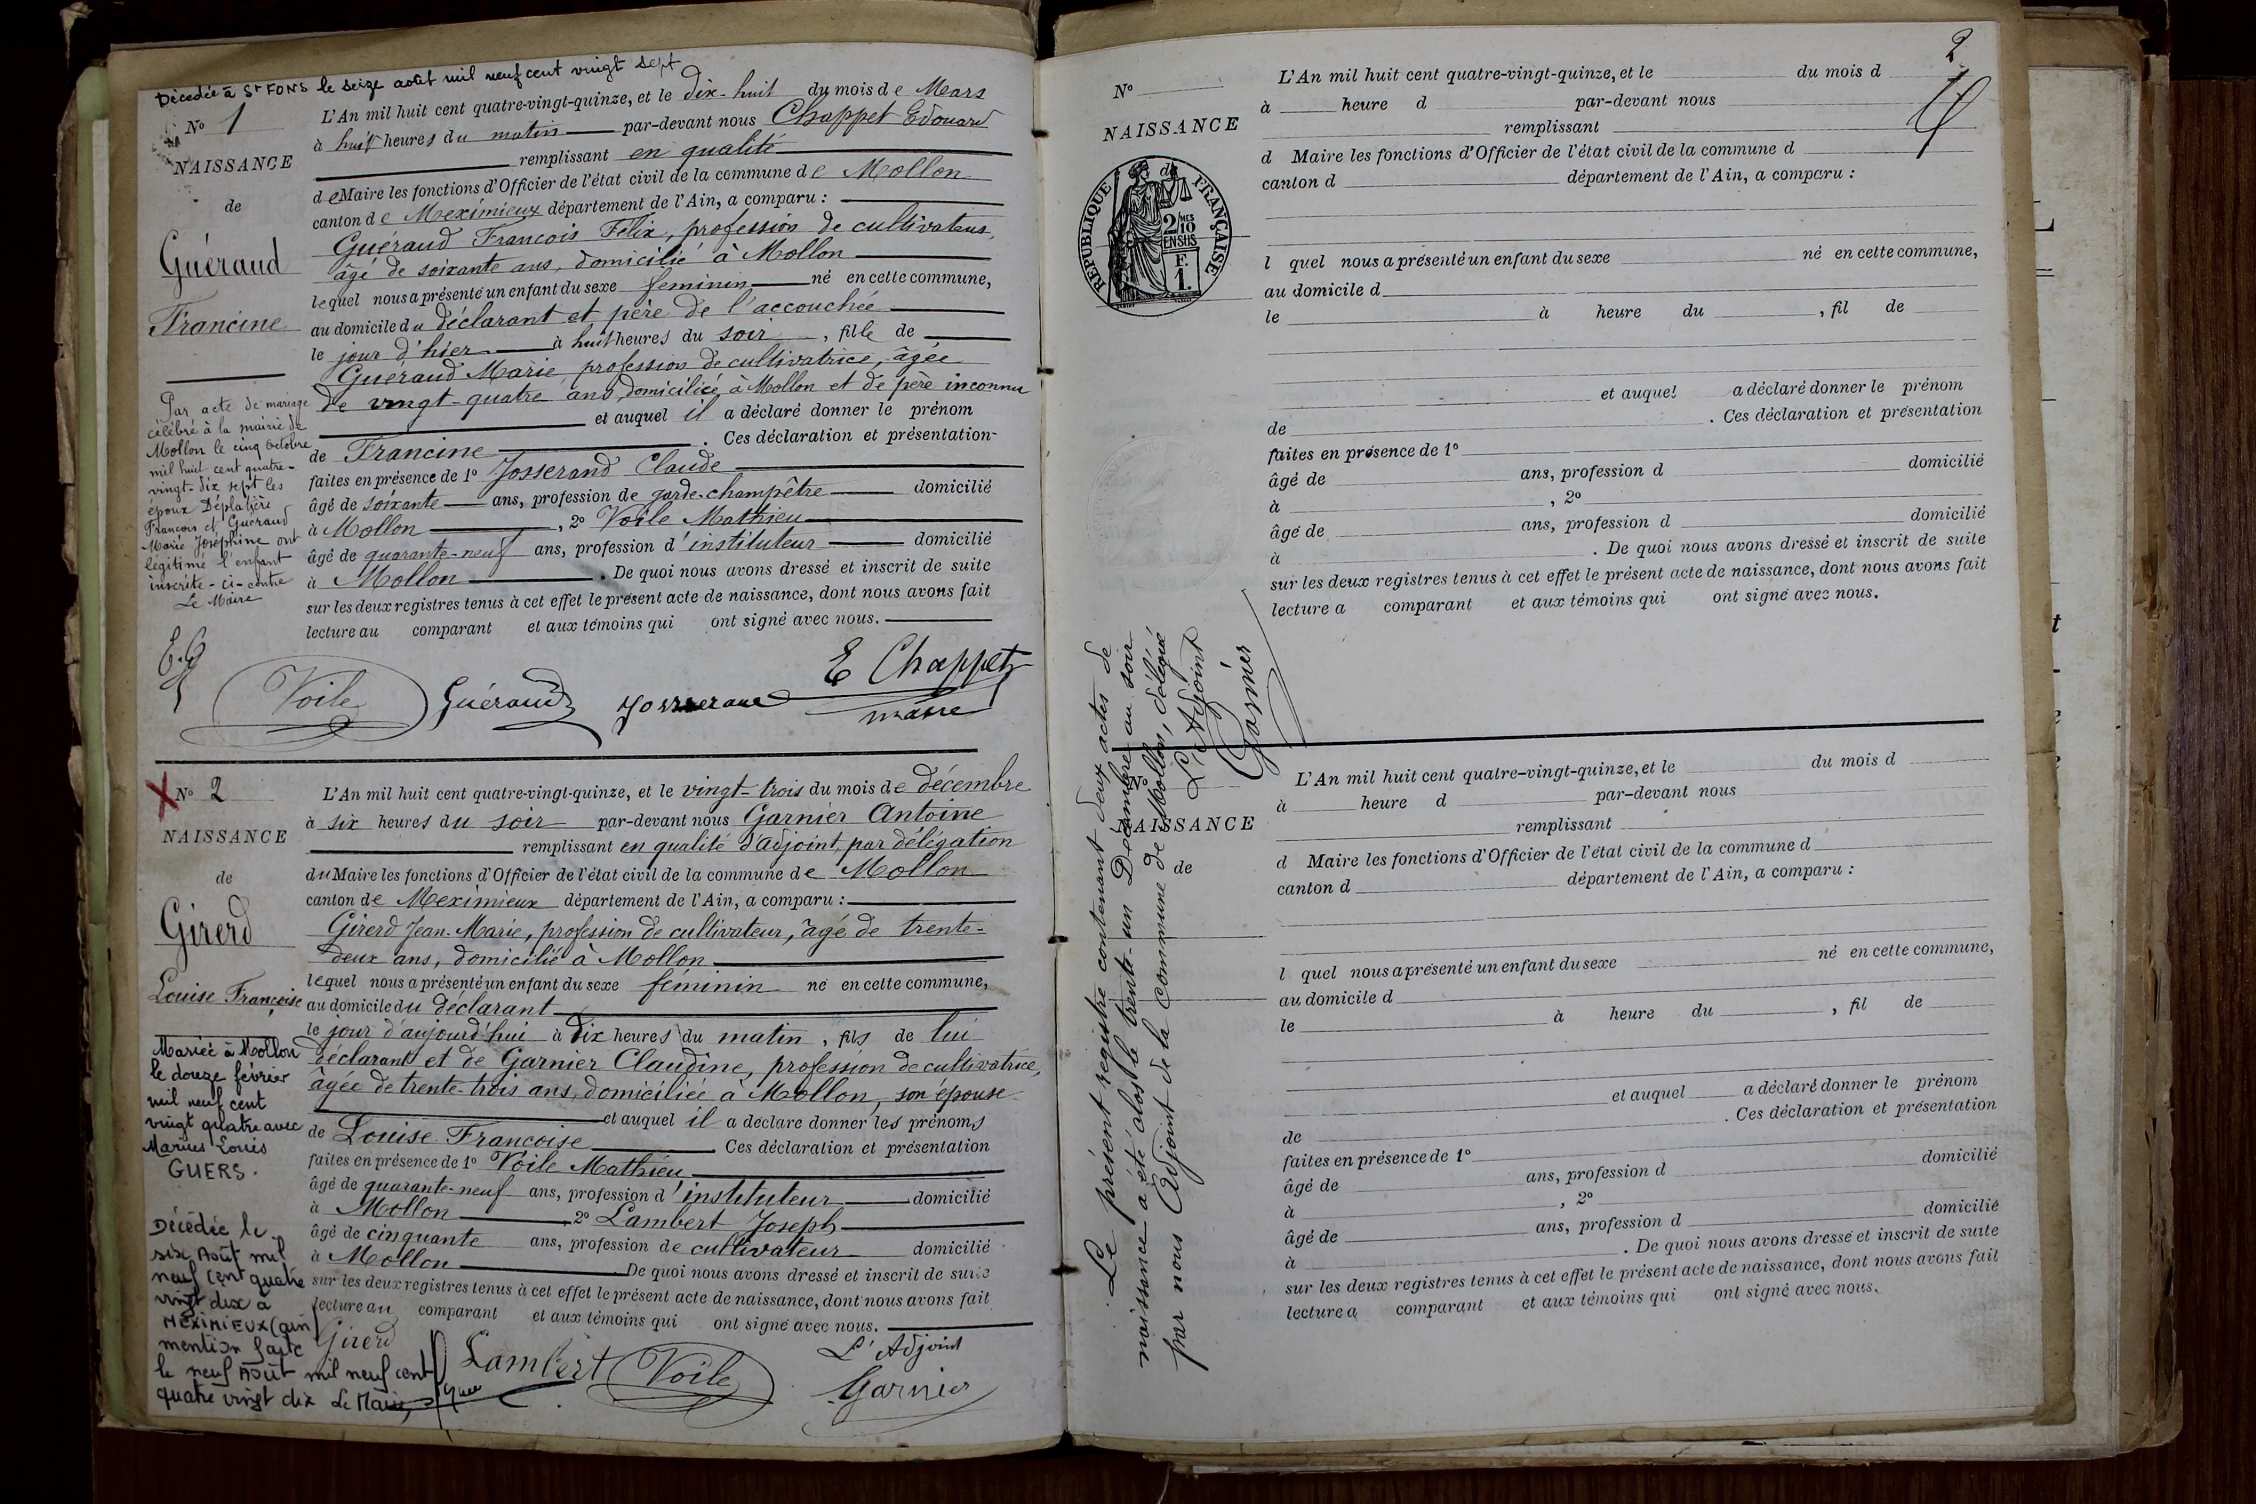 Décédée à St FONS le seize août mil neuf cent vingt sept
No 1
NAISSANCE
de
Guéraud
Francine
L'An mil huit cent quatre-vingt-quinze, et le dix-huit du mois de Mars
à huit heures du matin par-devant nous Chappet Edouard
remplissant en qualité
de Maire les fonctions d'Officier de l'état civil de la commune de Mollon
canton de Meximieux département de l'Ain, a comparu :
Guéraud François Félix, profession de cultivateur,
âgé de soixante ans, domicilié à Mollon
lequel nous a présenté un enfant du sexe féminin né en cette commune,
au domicile du déclarant et père de l'accouchée
le jour d'hier à huit heures du soir, fille de
Guéraud Marie profession de cultivatrice, âgée
de vingt-quatre ans domiciliée à Mollon et de père inconnu
et auquel il a déclaré donner le prénom
de Francine. Ces déclaration et présentation
faites en présence de 1º Josserand Claude
âgé de soixante ans, profession de garde-champêtre domicilié
à Mollon, 2º Voile Mathieu
âgé de quarante-neuf ans, profession d'instituteur domicilié
à Mollon. De quoi nous avons dressé et inscrit de suite
sur les deux registres tenus à cet effet le présent acte de naissance, dont nous avons fait
lecture au comparant et aux témoins qui ont signé avec nous.
Par acte de mariage
célébré à la mairie de
Mollon le cinq Octobre
mil huit cent quatre-
vingt-dix sept les
époux Déplatière
François et Guéraud
Marie Joséphine ont
légitimé l'enfant
inscrite-ci-contre
Le Maire
E. C
Voile Guéraud Josserand E Chappet
maire
No 2
NAISSANCE
de
Girerd
Louise Françoise
L'An mil huit cent quatre-vingt-quinze, et le vingt-trois du mois de décembre
à six heures du soir par-devant nous Garnier Antoine
remplissant en qualité d'adjoint, par délégation
du Maire les fonctions d'Officier de l'état civil de la commune de Mollon
canton de Meximieux département de l'Ain, a comparu :
Girerd Jean-Marie, profession de cultivateur, âgé de trente-
deux ans, domicilié à Mollon
lequel nous a présenté un enfant du sexe féminin né en cette commune,
au domicile du déclarant
le jour d'aujourd'hui à dix heures du matin, fils de lui
déclarant et de Garnier Claudine, profession de cultivatrice,
âgée de trente-trois ans, domiciliée à Mollon, son épouse
et auquel il a déclaré donner les prénoms
de Louise Françoise. Ces déclaration et présentation
faites en présence de 1º Voile Mathieu
âgé de quarante-neuf ans, profession d'instituteur domicilié
à Mollon 2º Lambert Joseph
âgé de cinquante ans, profession de cultivateur domicilié
à Mollon De quoi nous avons dressé et inscrit de suite
sur les deux registres tenus à cet effet le présent acte de naissance, dont nous avons fait
lecture au comparant et aux témoins qui ont signé avec nous.
Mariée à Mollon
le douze février
mil neuf cent
vingt quatre avec
Marius Louis
GUERS.
Décédée le
six Août mil
neuf cent quatre
vingt dix à
MEXIMIEUX (ain)
mention faite
le neuf Août mil neuf cent
quatre vingt dix Le Maire,
Girerd Lambert Voile L'Adjoint
Garnier
2
No
NAISSANCE
REPUBLIQUE FRANÇAISE
2/10 MES
EN SUS
F.
1.
L'An mil huit cent quatre-vingt-quinze, et le du mois d
à heure d par-devant nous
remplissant
d Maire les fonctions d'Officier de l'état civil de la commune d
canton d département de l'Ain, a comparu :
l quel nous a présenté un enfant du sexe né en cette commune,
au domicile d
le à heure du , fil de
et auquel a déclaré donner le prénom
de . Ces déclaration et présentation
faites en présence de 1º
âgé de ans, profession d domicilié
à , 2º
âgé de ans, profession d domicilié
à . De quoi nous avons dressé et inscrit de suite
sur les deux registres tenus à cet effet le présent acte de naissance, dont nous avons fait
lecture a comparant et aux témoins qui ont signé avec nous.
Le présent registre contenant deux actes de
naissance a été clos le trente-un Décembre au soir
par nous Adjoint de la commune de Mollon, délégué
L'Adjoint
Garnier
NAISSANCE
de
L'An mil huit cent quatre-vingt-quinze, et le du mois d
à heure d par-devant nous
remplissant
d Maire les fonctions d'Officier de l'état civil de la commune d
canton d département de l'Ain, a comparu :
l quel nous a présenté un enfant du sexe né en cette commune,
au domicile d
le à heure du , fil de
et auquel a déclaré donner le prénom
de . Ces déclaration et présentation
faites en présence de 1º
âgé de ans, profession d domicilié
à , 2º
âgé de ans, profession d domicilié
à . De quoi nous avons dressé et inscrit de suite
sur les deux registres tenus à cet effet le présent acte de naissance, dont nous avons fait
lecture a comparant et aux témoins qui ont signé avec nous.